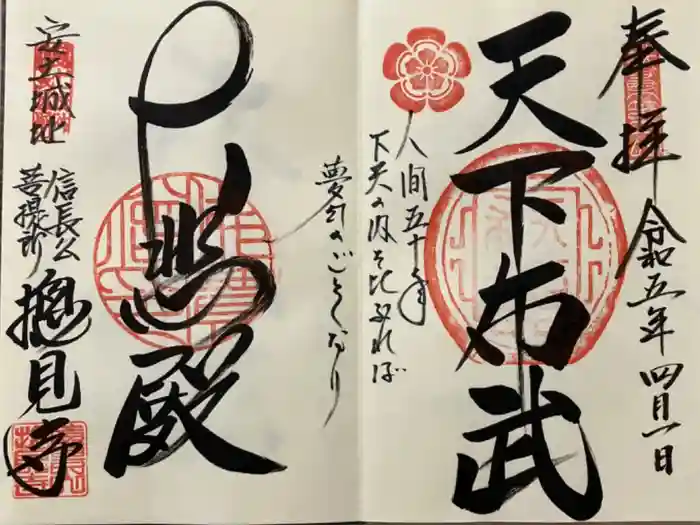 奉拝 令和五年四月一日
天下布武
人間五十年
下天の内を比ぶれば
夢幻のごとくなり
殿
安土城址
信長公
菩提所
摠見寺